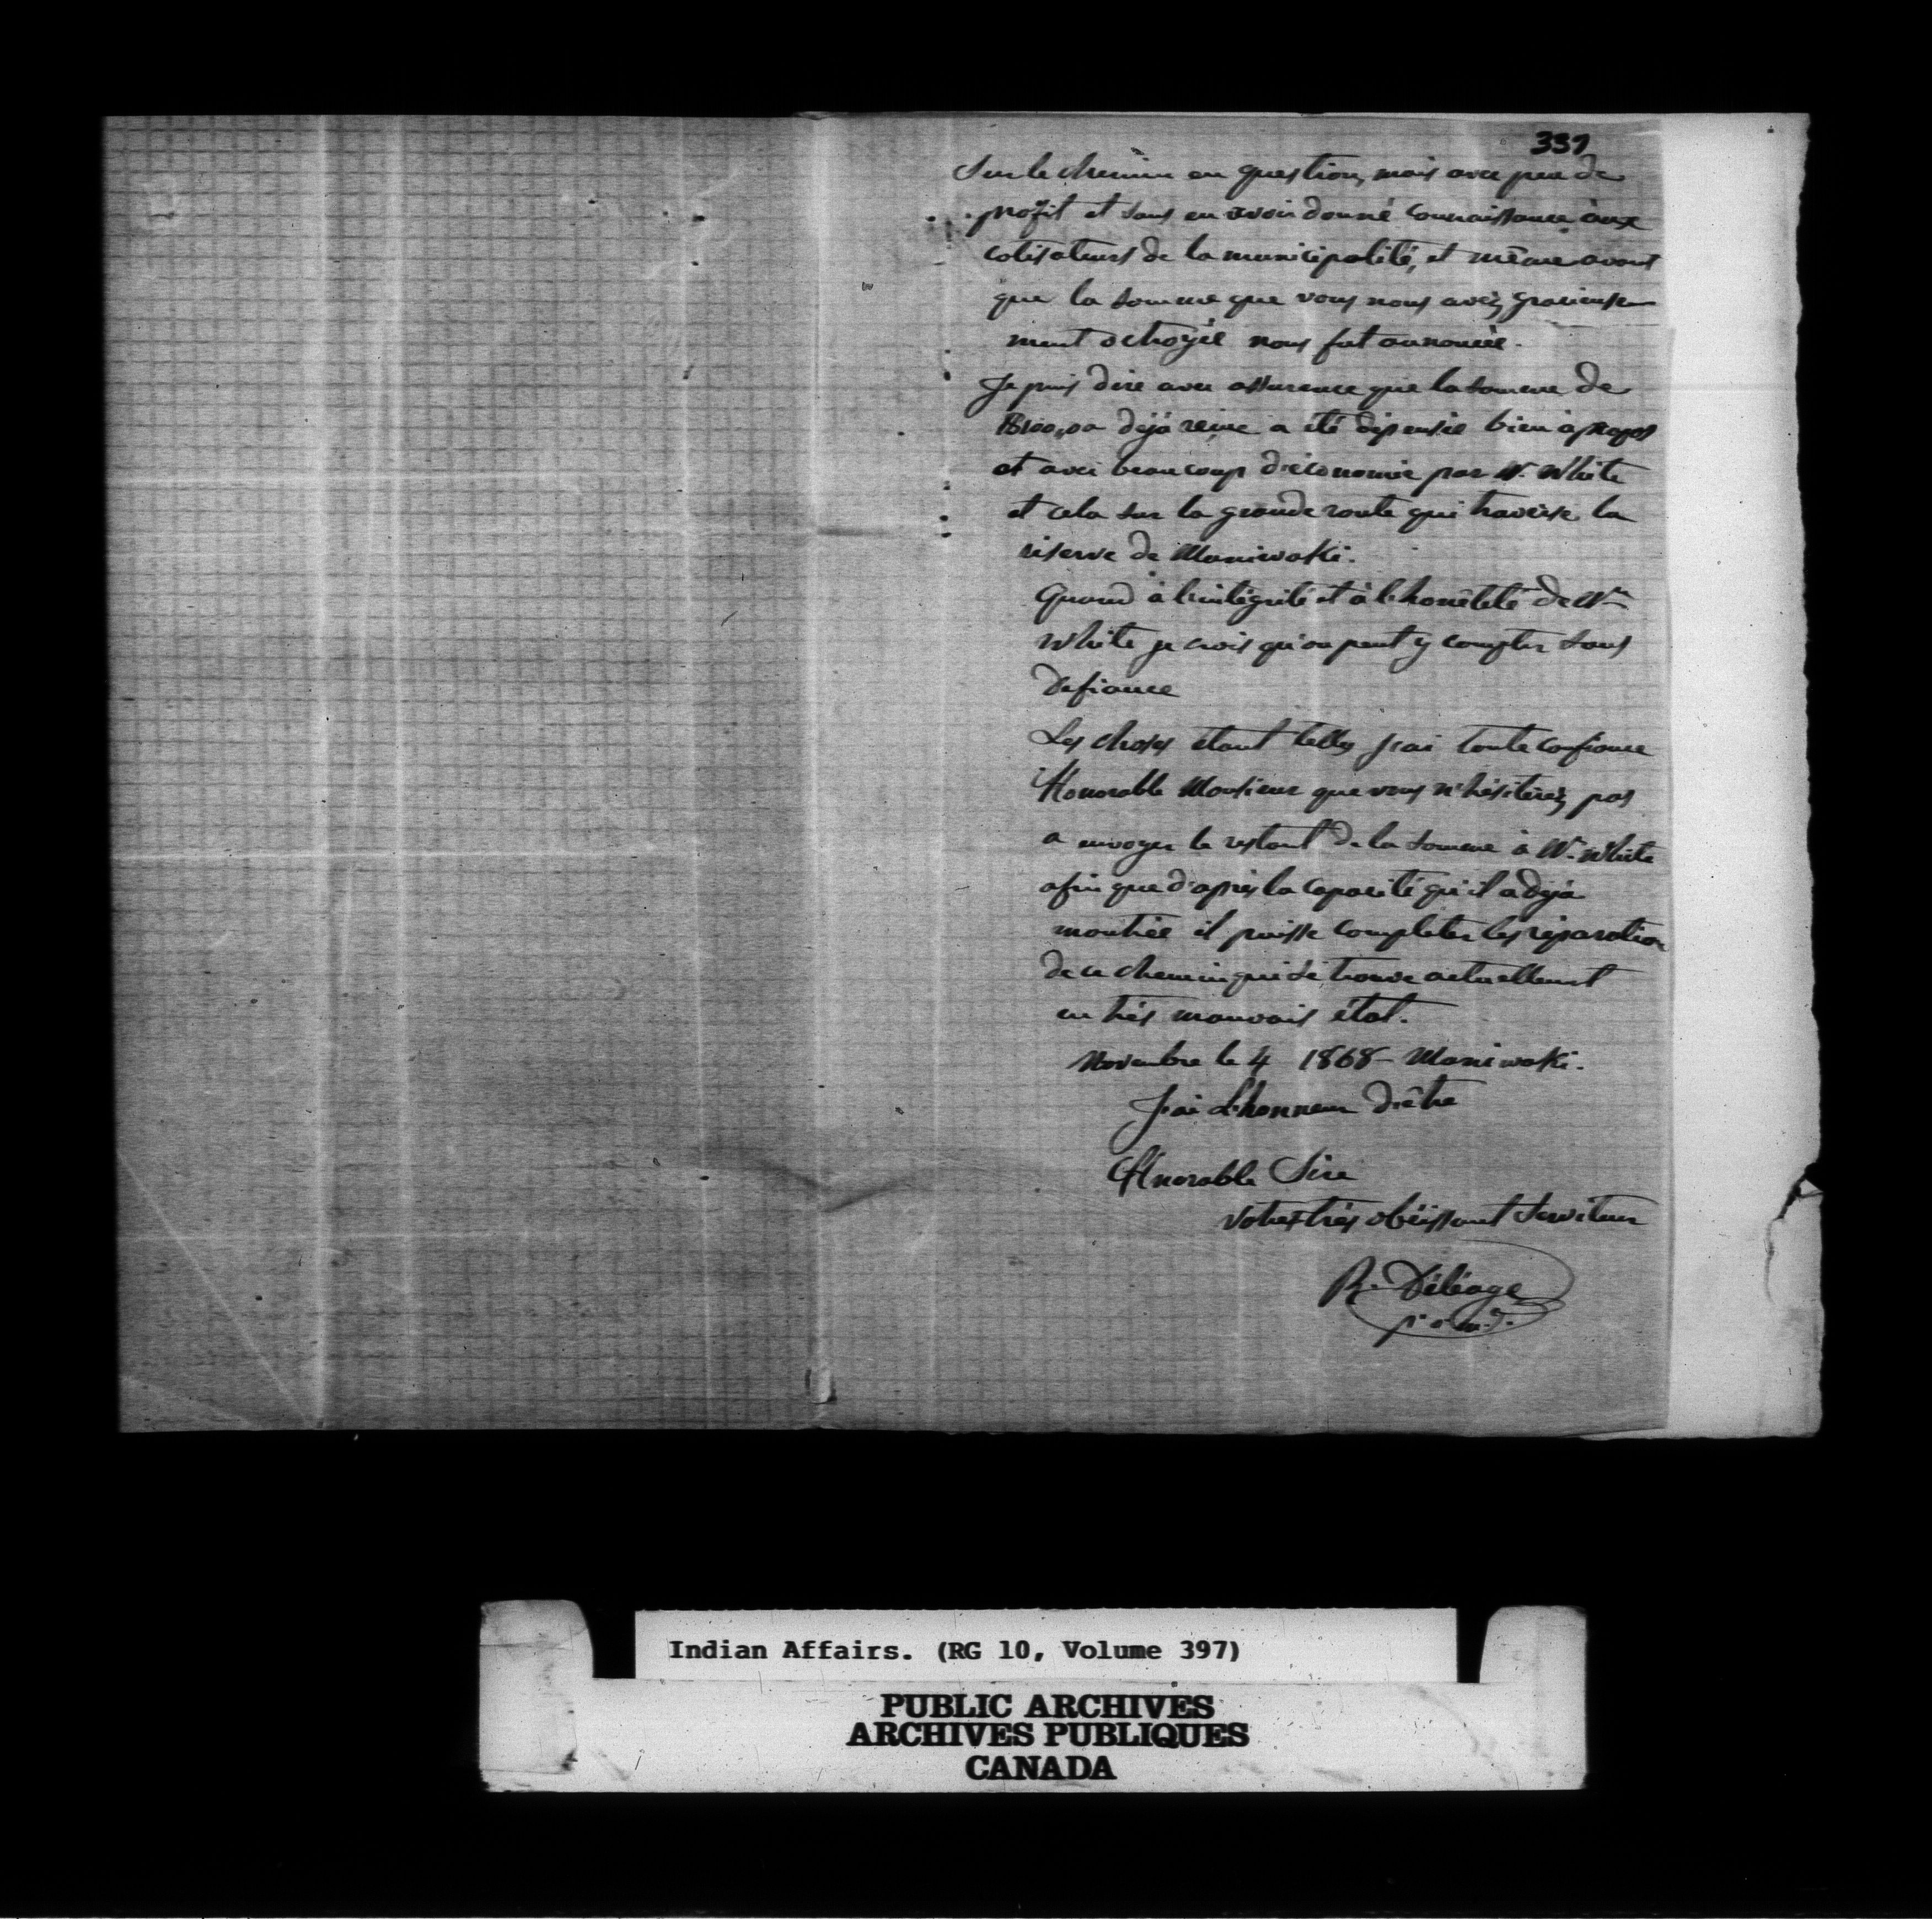 339
Sur le chemin en question, mais avec peu de
profit et sans en avoir donné connaissance aux
cotisateurs de la municipalité, et même avant
que la somme que vous nous avéz gracieuse
ment octroyée nous fut annoncée.
Je puis dire avec assurence que la somme de
$100,00 déjà reçue a été dépensée bien à propos
et avec beaucoup d'économie par Mr. White
et cela sur la grande route qui traverse la
réserve de Maniwaki.
Quand à l'intégrité et à l'honêteté de Mr
White je crois qu'on peut y compter sans
defiance
Les choses étant telles j'ai toute confiance
Honorable Monsieur que vous n'hésiteréz pas
a envoyer le restant de la somme à Mr. White
afin que d'après la capacité qu'il a déjà
montrée il puisse completer les réparation
de ce chemin qui se trouve actuellement
en très mauvais état.
Novembre le 4 1868 - Maniwaki.
J'ai L'honneur d'être
Honorable Sire
Votre très obéissant Serviteur
R. Déléage
Indian Affairs. (RG 10, Volume 397)
PUBLIC ARCHIVES
ARCHIVES PUBLIQUES
CANADA